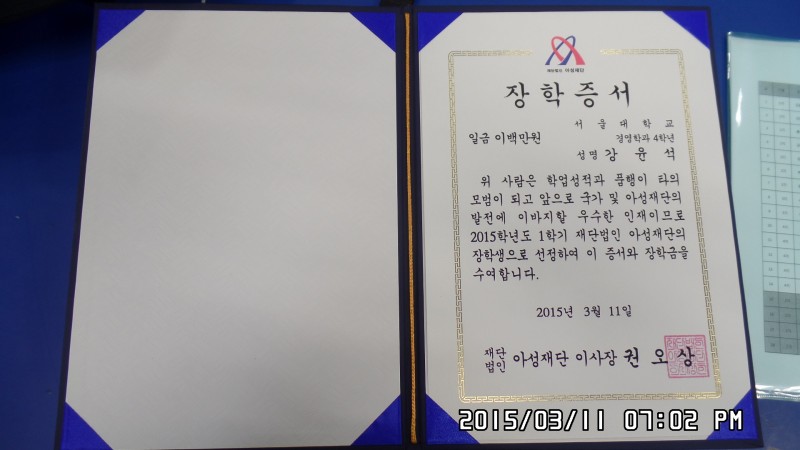 재단법인 아성재단
장학증서
서울대학교
일금 이백만원
경영학과 4학년
성명 강윤석
위 사람은 학업성적과 품행이 타의
모범이 되고 앞으로 국가 및 아성재단의
발전에 이바지할 우수한 인재이므로
2015학년도 1학기 재단법인 아성재단의
장학생으로 선정하여 이 증서와 장학금을
수여합니다.
2015년 3월 11일
재단법인 아성재단 이사장 권오상
2015/03/11 07:02 PM